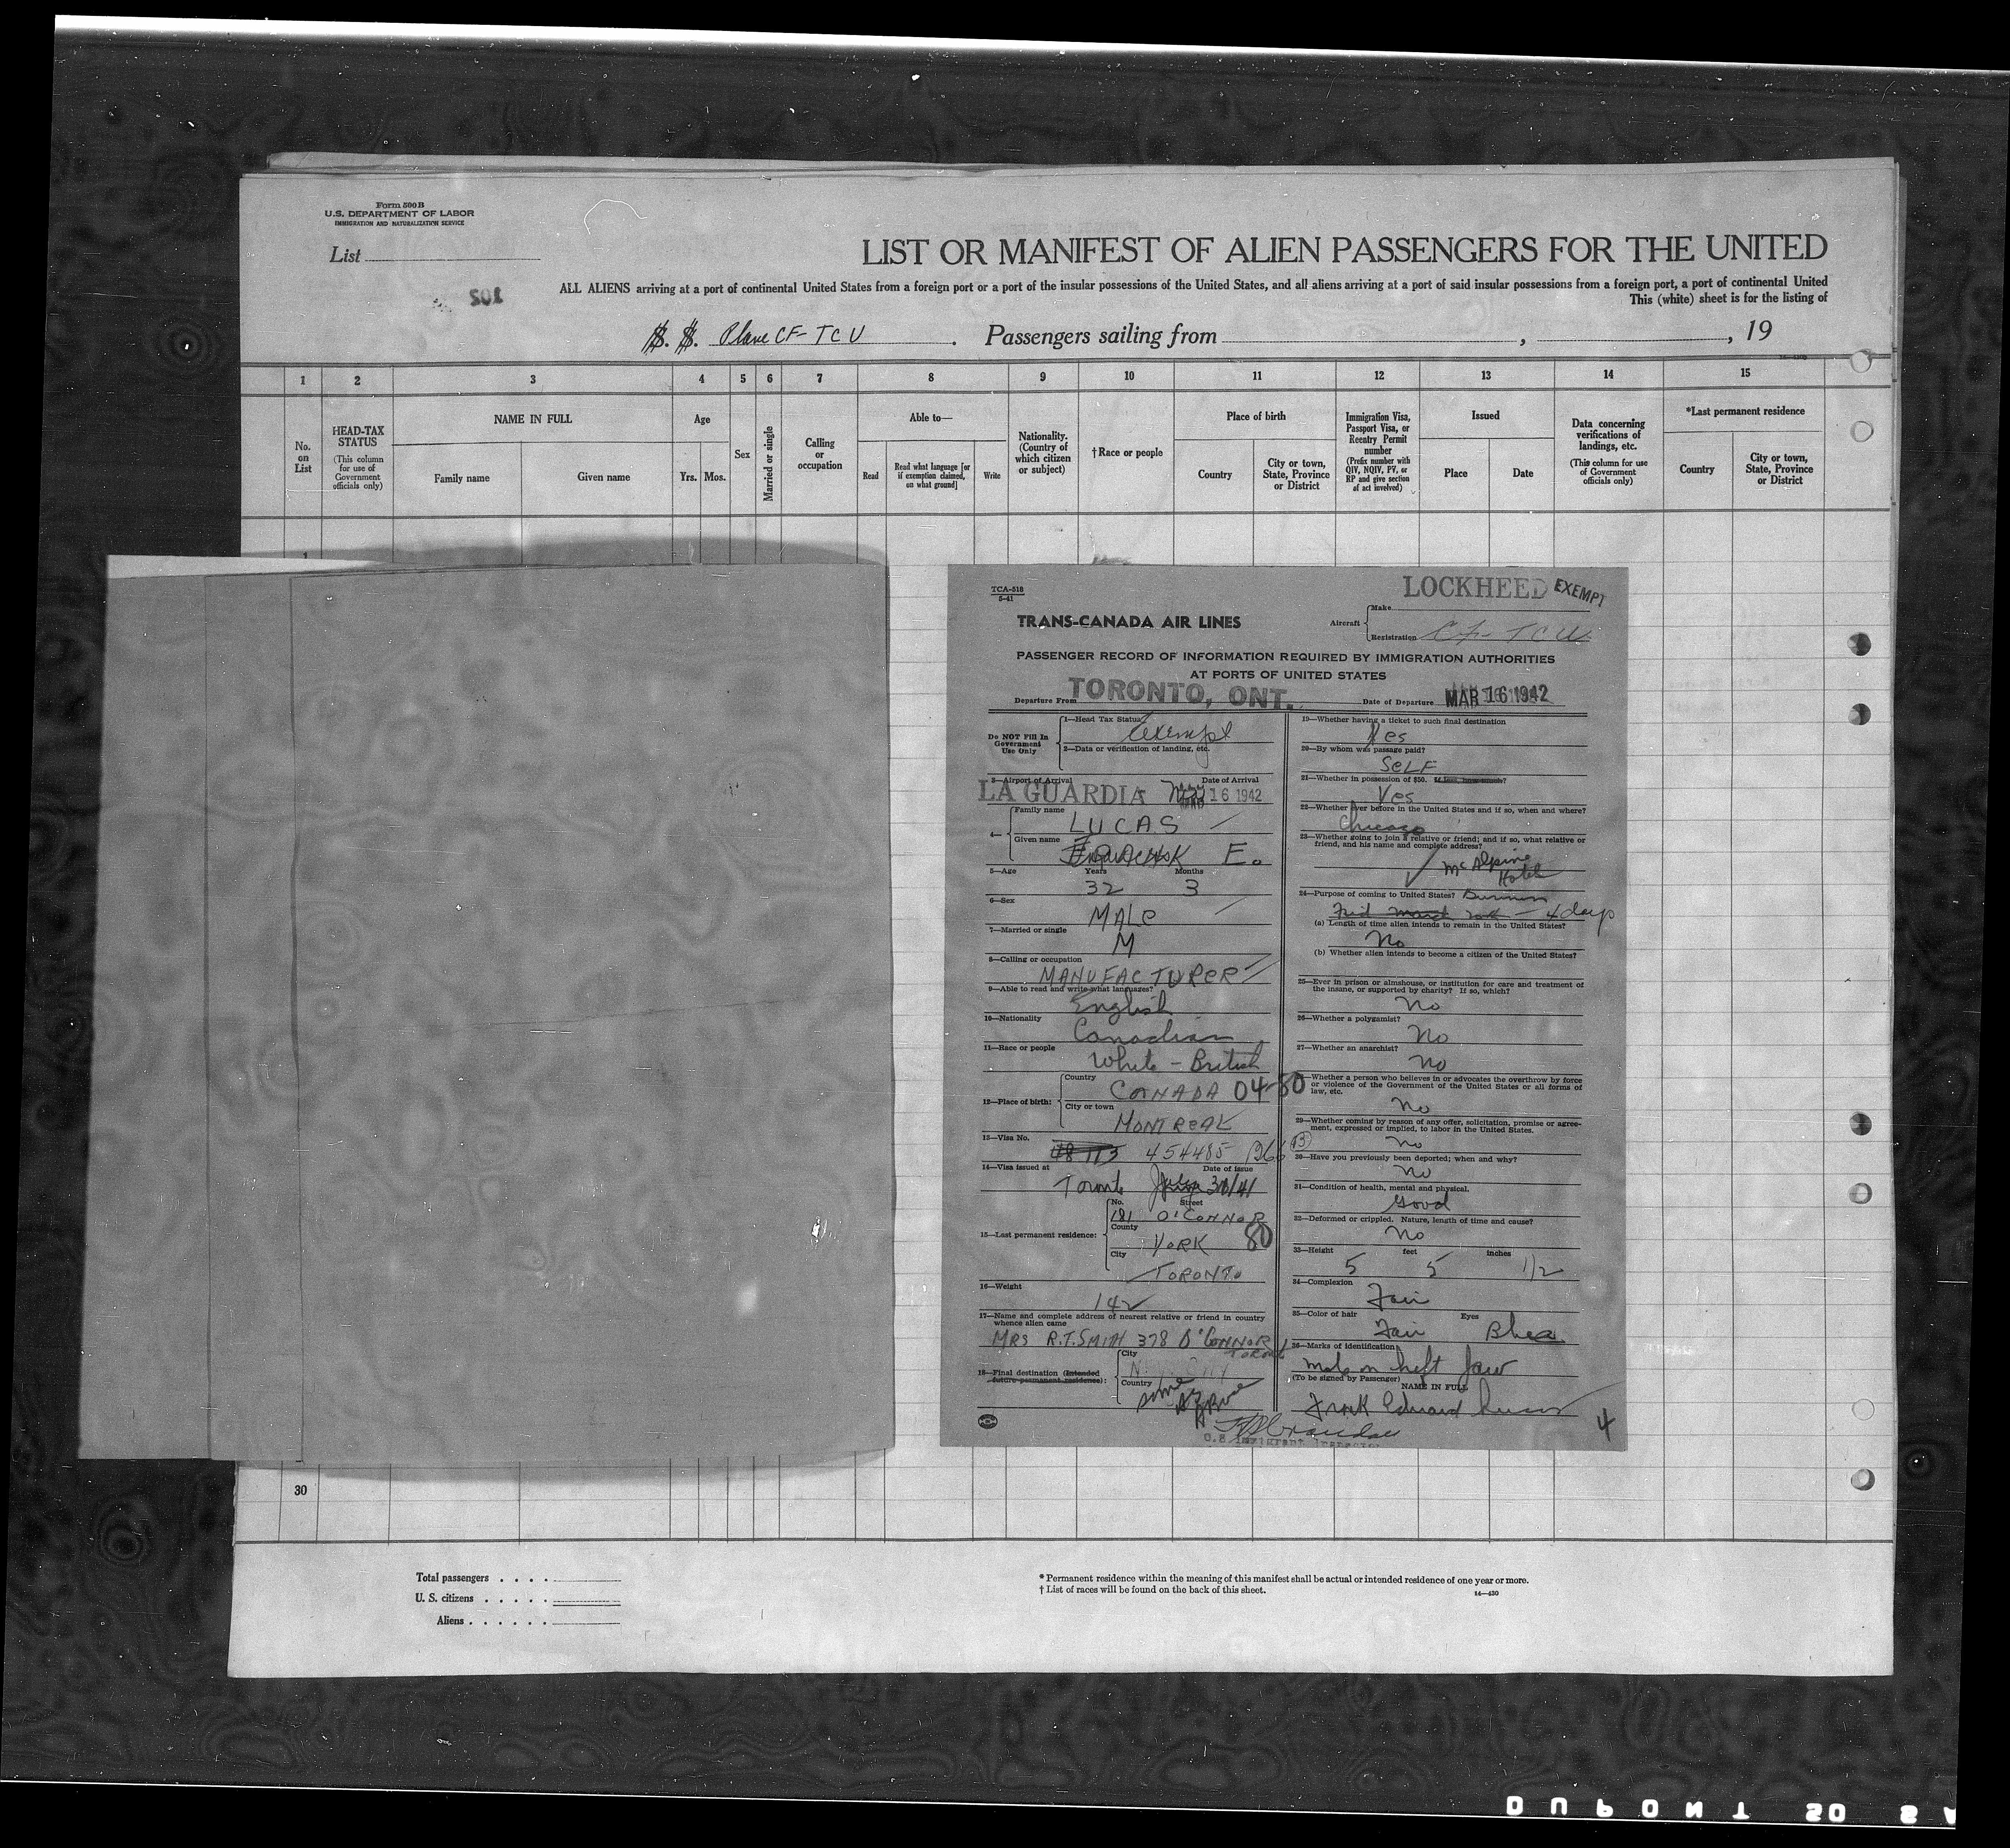 Form 500 B
U.S. DEPARTMENT OF LABOR
IMMIGRATION AND NATURALIZATION SERVICE
List
501
LIST OR MANIFEST OF ALIEN PASSENGERS FOR THE UNITED
ALL ALIENS arriving at a port of continental United States from a foreign port or a port of the insular possessions of the United States, and all aliens arriving at a port of said insular possessions from a foreign port, a port of continental United
This (white) sheet is for the listing of
S. S. Plane CF-TCU . Passengers sailing from , , 19
1 2 3 4 5 6 7 8 9 10 11 12 13 14 15
No. on List
HEAD-TAX STATUS
(This column for use of Government officials only)
NAME IN FULL
Family name Given name
Age
Yrs. Mos.
Sex
Married or single
Calling or occupation
Able to—
Read
Read what language [or if exemption claimed, on what ground]
Write
Nationality. (Country of which citizen or subject)
†Race or people
Place of birth
Country
City or town, State, Province or District
Immigration Visa, Passport Visa, or Reentry Permit number
(Prefix number with QIV, NQIV, PV, or RP and give section of act involved)
Issued
Place Date
Data concerning verifications of landings, etc.
(This column for use of Government officials only)
*Last permanent residence
Country
City or town, State, Province or District
1
TCA-518
5-41
LOCKHEED EXEMPT
TRANS-CANADA AIR LINES
Aircraft
Make
Registration CF-TCU
PASSENGER RECORD OF INFORMATION REQUIRED BY IMMIGRATION AUTHORITIES
AT PORTS OF UNITED STATES
Departure From TORONTO, ONT. Date of Departure MAR 16 1942
Do NOT Fill In
Government
Use Only
1—Head Tax Status
Exempt
2—Data or verification of landing, etc.
3—Airport of Arrival Date of Arrival
LA GUARDIA 16 1942
4—
Family name
LUCAS
Given name
E.
5—Age Years Months
32 3
6—Sex
MALE
7—Married or single
M
8—Calling or occupation
MANUFACTURER
9—Able to read and write what languages?
English
10—Nationality
Canadian
11—Race or people
White - British
12—Place of birth:
Country
CANADA 04-80
City or town
MONTREAL
13—Visa No.
48 113 454485
14—Visa issued at Date of issue
Toronto 30/41
15—Last permanent residence:
No. Street
181 O'CONNOR
County
YORK 80
City
TORONTO
16—Weight
142
17—Name and complete address of nearest relative or friend in country
whence alien came
MRS R.T. SMITH 378 O'CONNOR
TORONTO
18—Final destination (Intended
future permanent residence):
City
Country
19—Whether having a ticket to such final destination
Yes
20—By whom was passage paid?
SELF
21—Whether in possession of $50. If less, how much?
Yes
22—Whether ever before in the United States and if so, when and where?
Chicago
23—Whether going to join a relative or friend; and if so, what relative or
friend, and his name and complete address?
McAlpine
Hotel
24—Purpose of coming to United States? Business
4 days
(a) Length of time alien intends to remain in the United States?
No
(b) Whether alien intends to become a citizen of the United States?
25—Ever in prison or almshouse, or institution for care and treatment of
the insane, or supported by charity? If so, which?
No
26—Whether a polygamist?
No
27—Whether an anarchist?
No
Whether a person who believes in or advocates the overthrow by force
or violence of the Government of the United States or all forms of
law, etc.
No
29—Whether coming by reason of any offer, solicitation, promise or agree-
ment, expressed or implied, to labor in the United States.
No
30—Have you previously been deported; when and why?
No
31—Condition of health, mental and physical.
Good
32—Deformed or crippled. Nature, length of time and cause?
No
33—Height feet inches
5 5 1/2
34—Complexion
Fair
35—Color of hair Eyes
Fair Blue
36—Marks of identification
Mole on left jaw
(To be signed by Passenger)
NAME IN FULL
Frank Edward Lucas
4
U.S. Immigrant Inspector
30
Total passengers
U. S. citizens
Aliens
* Permanent residence within the meaning of this manifest shall be actual or intended residence of one year or more.
† List of races will be found on the back of this sheet.
14—430
DUPONT SO SA